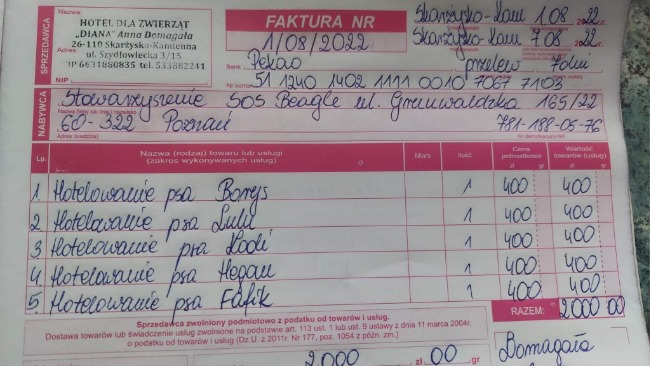 SPRZEDAWCA
HOTEL DLA ZWIERZĄT
"DIANA" Anna Domagała
Adres
26-110 Skarżysko-Kamienna
ul. Szydłowiecka 3/15
NIP 6631880835 tel. 533882241
NIP
FAKTURA NR
1/08/2022
Skarżysko-Kam 1.08.2022 r.
Skarżysko-Kam 7.08.2022 r.
Bank
Pekao
przelew 7 dni
51 1240 1402 1111 0010 7067 7103
NABYWCA
Stowarzyszenie SOS Beagle ul. Grunwaldzka 165/22
60-322 Poznań 781-188-05-76
Adres (siedziba)
Lp. Nazwa (rodzaj) towaru lub usługi (zakres wykonywanych usług) Miara Ilość Cena jednostkowa Wartość towarów (usług)
zł gr zł gr
1. Hotelowanie psa Borys 1 400 400
2 Hotelowanie psa Lulu 1 400 400
3 Hotelowanie psa Lodi 1 400 400
4 Hotelowanie psa Hegan 1 400 400
5. Hotelowanie psa Fafik 1 400 400
RAZEM: 2000 00
Sprzedawca zwolniony podmiotowo z podatku od towarów i usług.
Dostawa towarów lub świadczenie usług zwolnione na podstawie art. 113 ust. 1 lub ust. 9 ustawy z dnia 11 marca 2004r.
o podatku od towarów i usług (Dz.U. z 2011r. Nr 177, poz. 1054 z późn. zm.)
2000 zł 00 gr
Domagała